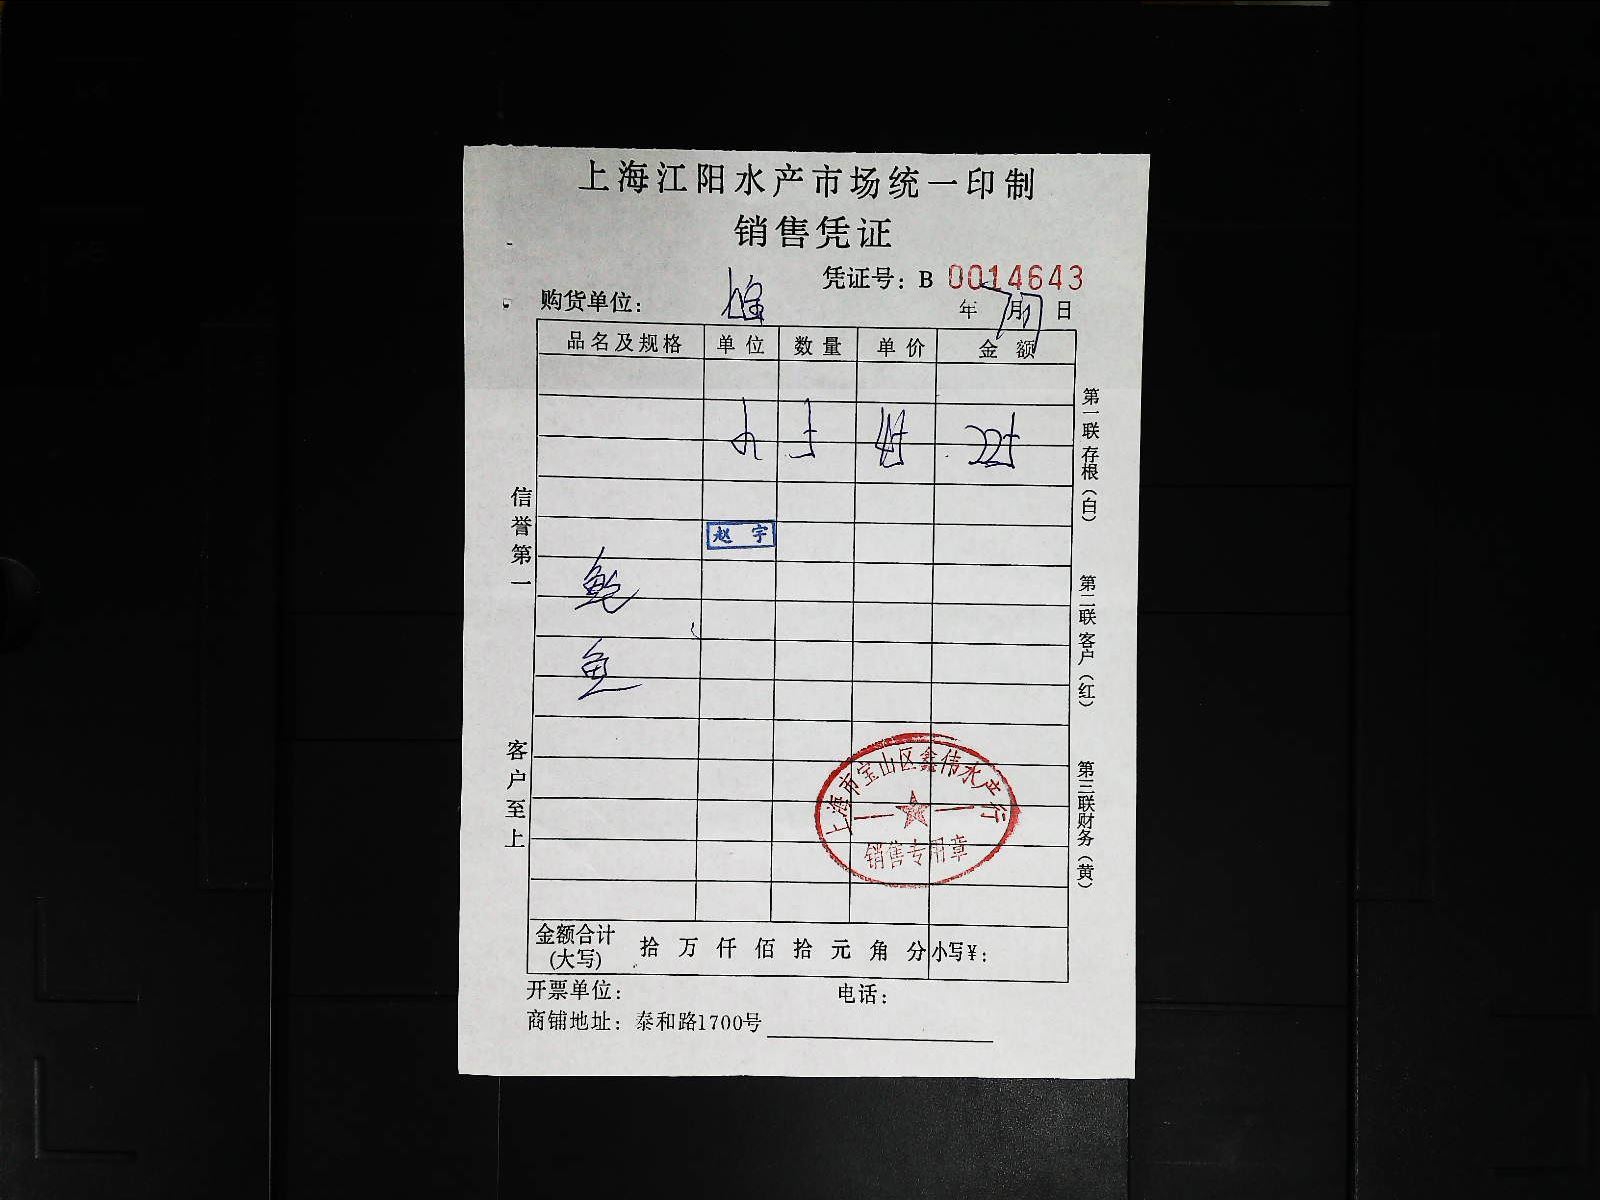 上海江阳水产市场统一印制
销售凭证
凭证号：B 0014643
购货单位：
年 7月17日
品名及规格 单位 数量 单价 金额
赵宇
鲍
鱼
上海市宝山区鑫伟水产行
销售专用章
金额合计(大写) 拾 万 仟 佰 拾 元 角 分 小写¥：
开票单位： 电话：
商铺地址：泰和路1700号
信誉第一
客户至上
第一联存根（白）
第二联客户（红）
第三联财务（黄）